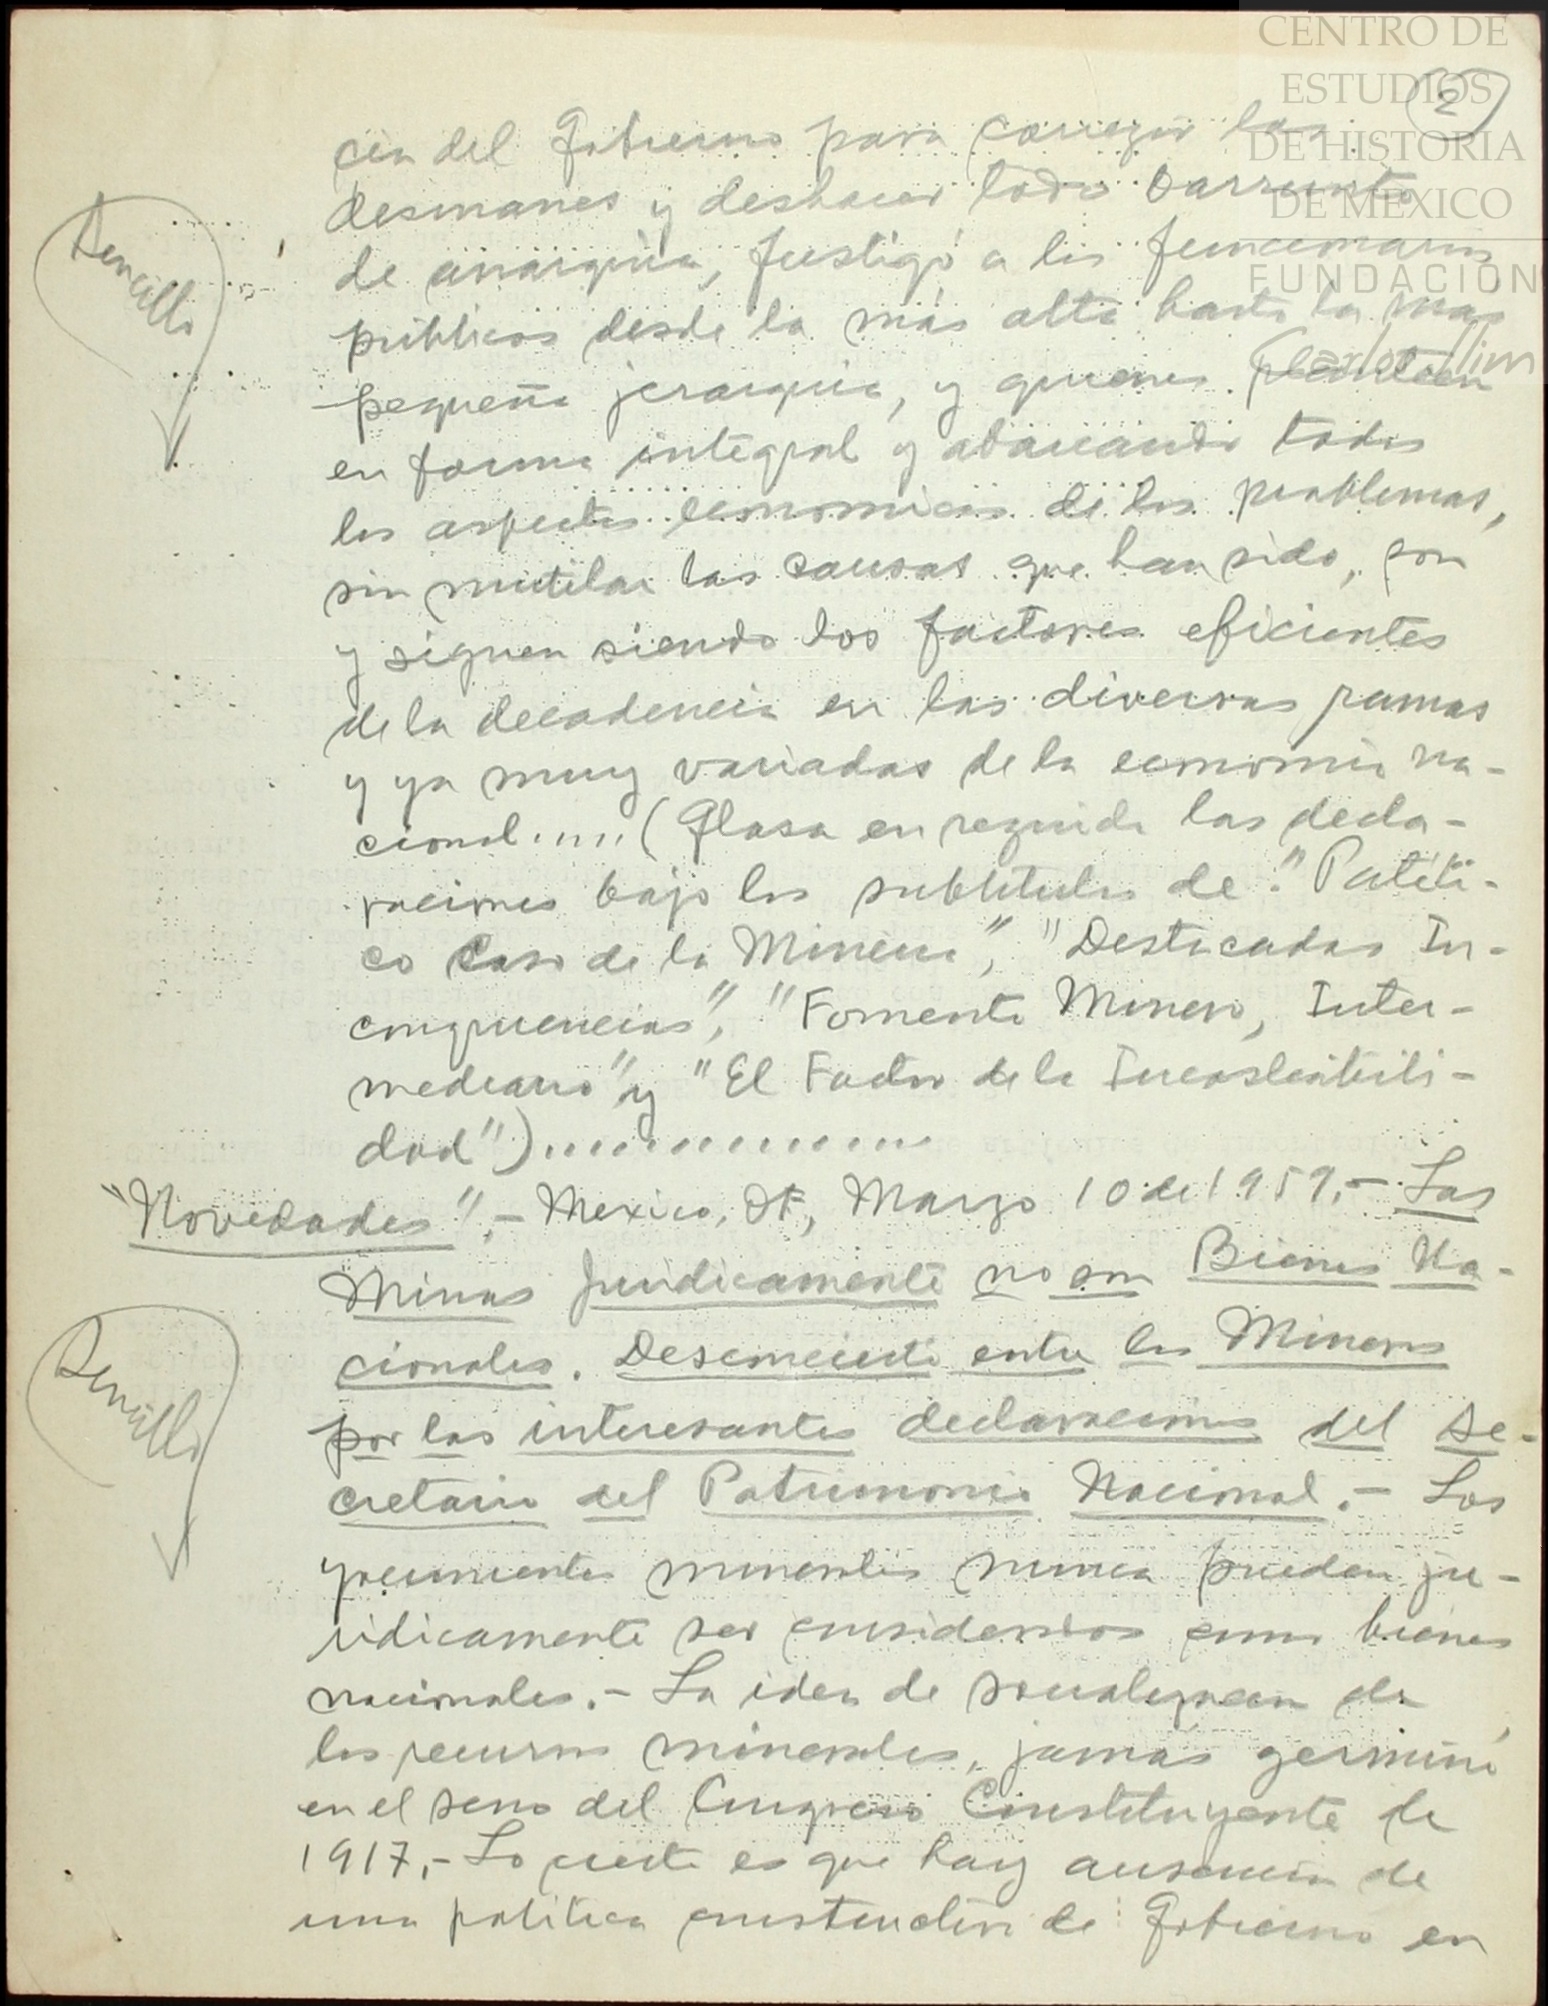 CENTRO DE
ESTUDIOS
DE HISTORIA
DE MÉXICO
FUNDACIÓN
Carlos Slim
2
cia del Gobierno para corregir los
desmanes y deshacer todo barrunto
de anarquía, fustigó a los funcionarios
públicos desde la más alta hasta la mas
pequeña jerarquia, y quienes plantean
en forma integral y abarcando todos
los aspectos economicos de los problemas,
sin mutilar las causas que han sido, son
y siguen siendo los factores eficientes
de la decadencia en las diversas ramas
y ya muy variadas de la economia na-
cional.....(Glosa en seguida las decla-
raciones bajo los subtitulos de "Patéti-
co Caso de la Mineria", "Destacadas In-
congruencias", "Fomento Minero, Inter-
mediario" y "El Factor de la Incosteabili-
dad")..............
Sencillo
"Novedades".- Mexico, DF, Marzo 10 de 1959.- Las
Minas juridicamente no son Bienes Na-
cionales. Desconcierto entre los Mineros
por las interesantes declaraciones del Se-
cretario del Patrimonio Nacional.- Los
yacimientos minerales nunca pueden ju-
ridicamente ser considerados como bienes
nacionales.- La idea de socializacion de
los recursos minerales, jamas germinó
en el seno del Congreso Constituyente de
1917.- Lo cierto es que hay ausencia de
una politica constructiva de Gobierno en
Sencillo